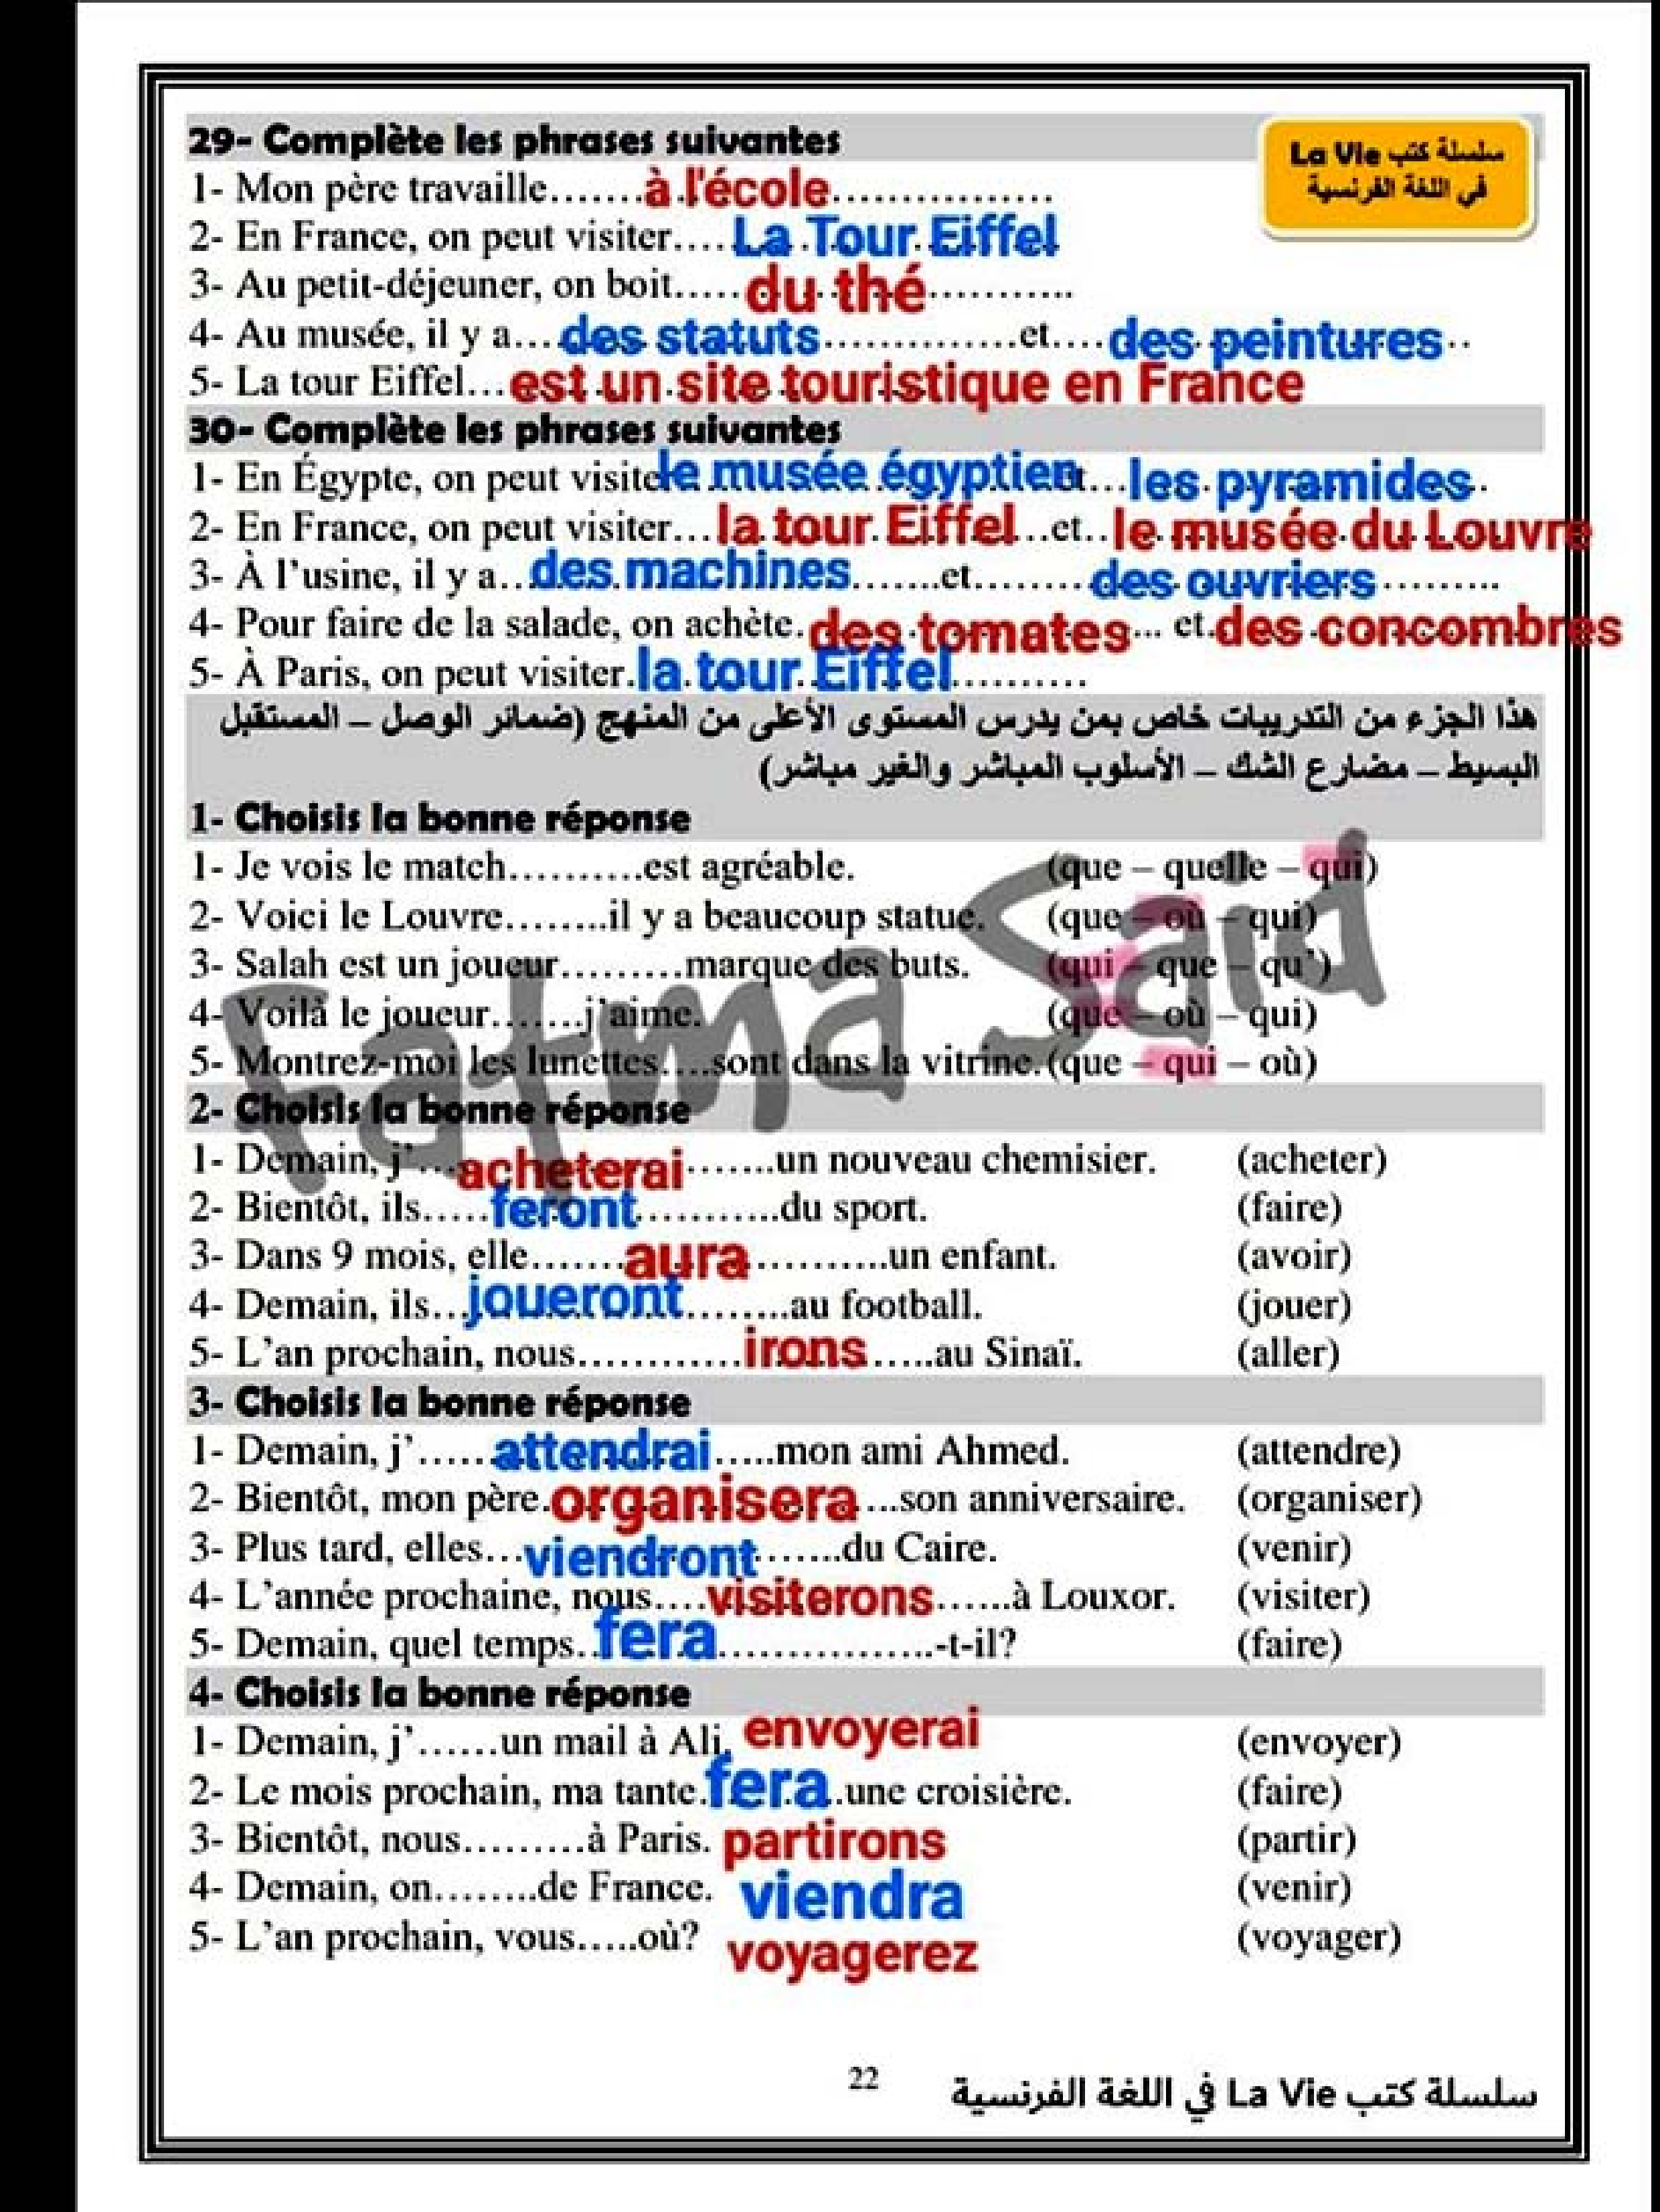 29- Complète les phrases suivantes
سلسلة كتب La Vie
في اللغة الفرنسية
1- Mon père travaille.......à l'école.................
2- En France, on peut visiter....La Tour Eiffel
3- Au petit-déjeuner, on boit.....du thé...........
4- Au musée, il y a...des statuts...............et....des peintures..
5- La tour Eiffel...est un site touristique en France
30- Complète les phrases suivantes
1- En Égypte, on peut visite le musée égyptien ...les pyramides.
2- En France, on peut visiter...la tour Eiffel...et..le musée du Louvre
3- À l'usine, il y a..des machines.......et........des ouvriers.........
4- Pour faire de la salade, on achète.des tomates... et.des concombres
5- À Paris, on peut visiter.la tour Eiffel..........
هذا الجزء من التدريبات خاص بمن يدرس المستوى الأعلى من المنهج (ضمائر الوصل – المستقبل
البسيط – مضارع الشك – الأسلوب المباشر والغير مباشر)
1- Choisis la bonne réponse
1- Je vois le match..........est agréable. (que – quelle – qui)
2- Voici le Louvre........il y a beaucoup statue. (que – où – qui)
3- Salah est un joueur.........marque des buts. (qui – que – qu')
4- Voilà le joueur.......j'aime. (que – où – qui)
5- Montrez-moi les lunettes....sont dans la vitrine.(que – qui – où)
Fatma Said
2- Choisis la bonne réponse
1- Demain, j'...acheterai.......un nouveau chemisier. (acheter)
2- Bientôt, ils.....feront...........du sport. (faire)
3- Dans 9 mois, elle.......aura..........un enfant. (avoir)
4- Demain, ils...joueront........au football. (jouer)
5- L'an prochain, nous............irons.....au Sinaï. (aller)
3- Choisis la bonne réponse
1- Demain, j'.....attendrai.....mon ami Ahmed. (attendre)
2- Bientôt, mon père.organisera...son anniversaire. (organiser)
3- Plus tard, elles...viendront.......du Caire. (venir)
4- L'année prochaine, nous....visiterons......à Louxor. (visiter)
5- Demain, quel temps..fera................-t-il? (faire)
4- Choisis la bonne réponse
1- Demain, j'......un mail à Ali. envoyerai (envoyer)
2- Le mois prochain, ma tante.fera.une croisière. (faire)
3- Bientôt, nous.........à Paris. partirons (partir)
4- Demain, on........de France. viendra (venir)
5- L'an prochain, vous.....où? voyagerez (voyager)
22
سلسلة كتب La Vie في اللغة الفرنسية